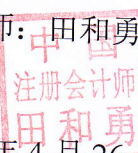 师：田和勇
中国
注册会计师
田和勇
年4月26